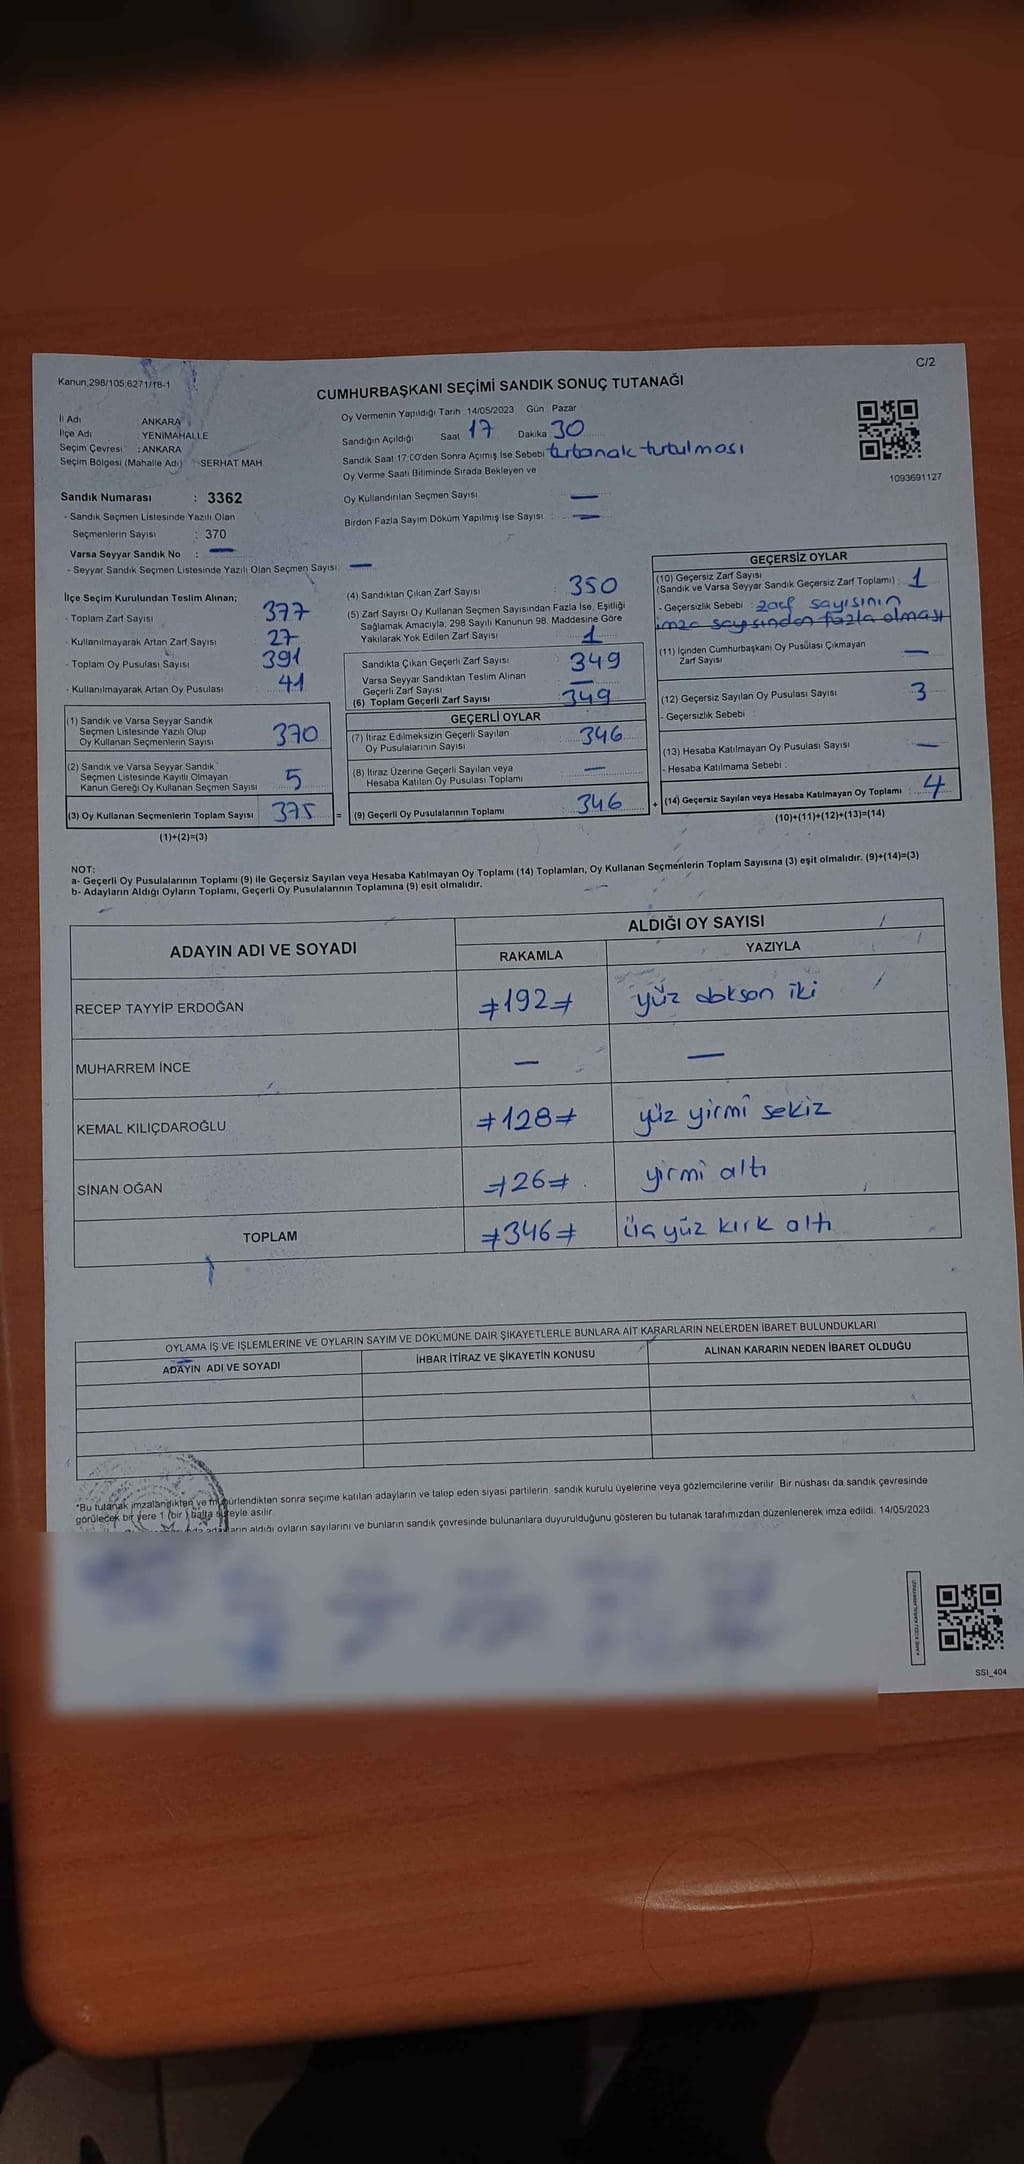 C/2
Kanun:298/105;6271/18-1
CUMHURBAŞKANI SEÇİMİ SANDIK SONUÇ TUTANAĞI
İl Adı : ANKARA
İlçe Adı : YENİMAHALLE
Seçim Çevresi : ANKARA
Seçim Bölgesi (Mahalle Adı) : SERHAT MAH
Oy Vermenin Yapıldığı Tarih 14/05/2023 Gün Pazar
Sandığın Açıldığı Saat 17 Dakika 30
Sandık Saat 17:00'den Sonra Açımış İse Sebebi tutanak tutulması
Oy Verme Saati Bitiminde Sırada Bekleyen ve
Oy Kullandırılan Seçmen Sayısı —
Birden Fazla Sayım Döküm Yapılmış İse Sayısı : —
1093691127
Sandık Numarası : 3362
- Sandık Seçmen Listesinde Yazılı Olan
Seçmenlerin Sayısı : 370
Varsa Seyyar Sandık No : —
- Seyyar Sandık Seçmen Listesinde Yazılı Olan Seçmen Sayısı: —
İlçe Seçim Kurulundan Teslim Alınan;
- Toplam Zarf Sayısı 377
- Kullanılmayarak Artan Zarf Sayısı 27
- Toplam Oy Pusulası Sayısı 391
- Kullanılmayarak Artan Oy Pusulası 41
(1) Sandık ve Varsa Seyyar Sandık
Seçmen Listesinde Yazılı Olup
Oy Kullanan Seçmenlerin Sayısı 370
(2) Sandık ve Varsa Seyyar Sandık
Seçmen Listesinde Kayıtlı Olmayan
Kanun Gereği Oy Kullanan Seçmen Sayısı 5
(3) Oy Kullanan Seçmenlerin Toplam Sayısı 375 =
(1)+(2)=(3)
(4) Sandıktan Çıkan Zarf Sayısı 350
(5) Zarf Sayısı Oy Kullanan Seçmen Sayısından Fazla İse, Eşitliği
Sağlamak Amacıyla, 298 Sayılı Kanunun 98. Maddesine Göre
Yakılarak Yok Edilen Zarf Sayısı 1
Sandıkta Çıkan Geçerli Zarf Sayısı 349
Varsa Seyyar Sandıktan Teslim Alınan
Geçerli Zarf Sayısı —
(6) Toplam Geçerli Zarf Sayısı 349
GEÇERLİ OYLAR
(7) İtiraz Edilmeksizin Geçerli Sayılan
Oy Pusulalarının Sayısı 346
(8) İtiraz Üzerine Geçerli Sayılan veya
Hesaba Katılan Oy Pusulası Toplamı —
(9) Geçerli Oy Pusulalarının Toplamı 346 +
GEÇERSİZ OYLAR
(10) Geçersiz Zarf Sayısı
(Sandık ve Varsa Seyyar Sandık Geçersiz Zarf Toplamı) : 1
- Geçersizlik Sebebi : zarf sayısının
imza sayısından fazla olması
(11) İçinden Cumhurbaşkanı Oy Pusulası Çıkmayan
Zarf Sayısı —
(12) Geçersiz Sayılan Oy Pusulası Sayısı 3
- Geçersizlik Sebebi :
(13) Hesaba Katılmayan Oy Pusulası Sayısı —
- Hesaba Katılmama Sebebi :
(14) Geçersiz Sayılan veya Hesaba Katılmayan Oy Toplamı : 4
(10)+(11)+(12)+(13)=(14)
NOT:
a- Geçerli Oy Pusulalarının Toplamı (9) ile Geçersiz Sayılan veya Hesaba Katılmayan Oy Toplamı (14) Toplamları, Oy Kullanan Seçmenlerin Toplam Sayısına (3) eşit olmalıdır. (9)+(14)=(3)
b- Adayların Aldığı Oyların Toplamı, Geçerli Oy Pusulalarının Toplamına (9) eşit olmalıdır.
ADAYIN ADI VE SOYADI
ALDIĞI OY SAYISI
RAKAMLA YAZIYLA
RECEP TAYYİP ERDOĞAN ≠192≠ yüz doksan iki
MUHARREM İNCE — —
KEMAL KILIÇDAROĞLU ≠128≠ yüz yirmi sekiz
SİNAN OĞAN ≠26≠ yirmi altı
TOPLAM ≠346≠ üç yüz kırk altı
OYLAMA İŞ VE İŞLEMLERİNE VE OYLARIN SAYIM VE DÖKÜMÜNE DAİR ŞİKAYETLERLE BUNLARA AİT KARARLARIN NELERDEN İBARET BULUNDUKLARI
ADAYIN ADI VE SOYADI İHBAR İTİRAZ VE ŞİKAYETİN KONUSU ALINAN KARARIN NEDEN İBARET OLDUĞU
*Bu tutanak imzalandıktan ve mühürlendikten sonra seçime katılan adayların ve talep eden siyasi partilerin sandık kurulu üyelerine veya gözlemcilerine verilir. Bir nüshası da sandık çevresinde
görülecek bir yere 1 (bir) hafta süreyle asılır.
aldığı oyların sayılarını ve bunların sandık çevresinde bulunanlara duyurulduğunu gösteren bu tutanak tarafımızdan düzenlenerek imza edildi. 14/05/2023
SSI_404